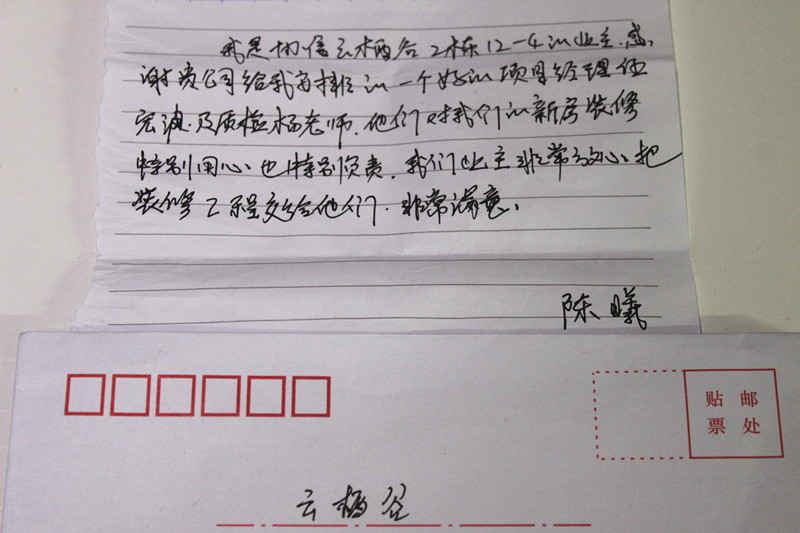 我是协信云栖谷2栋12-4的业主.感
谢贵公司给我安排的一个好的项目经理伍
宏波.及质检杨老师.他们对我们的新房装修
特别用心、也特别负责.我们业主非常放心、把
装修工程交给他们.非常满意、
陈曦
贴邮
票处
云栖谷